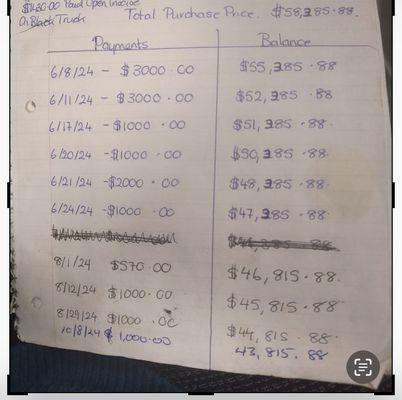 Paid Open Invoice
On Black Truck
Total Purchase Price. $58,385.88.
Payments Balance
6/8/24 - $3000.00 $55,385.88
6/11/24 - $3000.00 $52,385.88
6/17/24 - $1000.00 $51,385.88.
6/20/24 - $1000.00 $50,385.88.
6/21/24 - $2000.00 $48,385.88.
6/24/24 - $1000.00 $47,385.88.
8/1/24 $570.00 $46,815.88.
8/12/24 $1000.00 $45,815.88.
8/29/24 $1000.00 $44,815.88.
10/8/24 $1,000.00 43,815.88